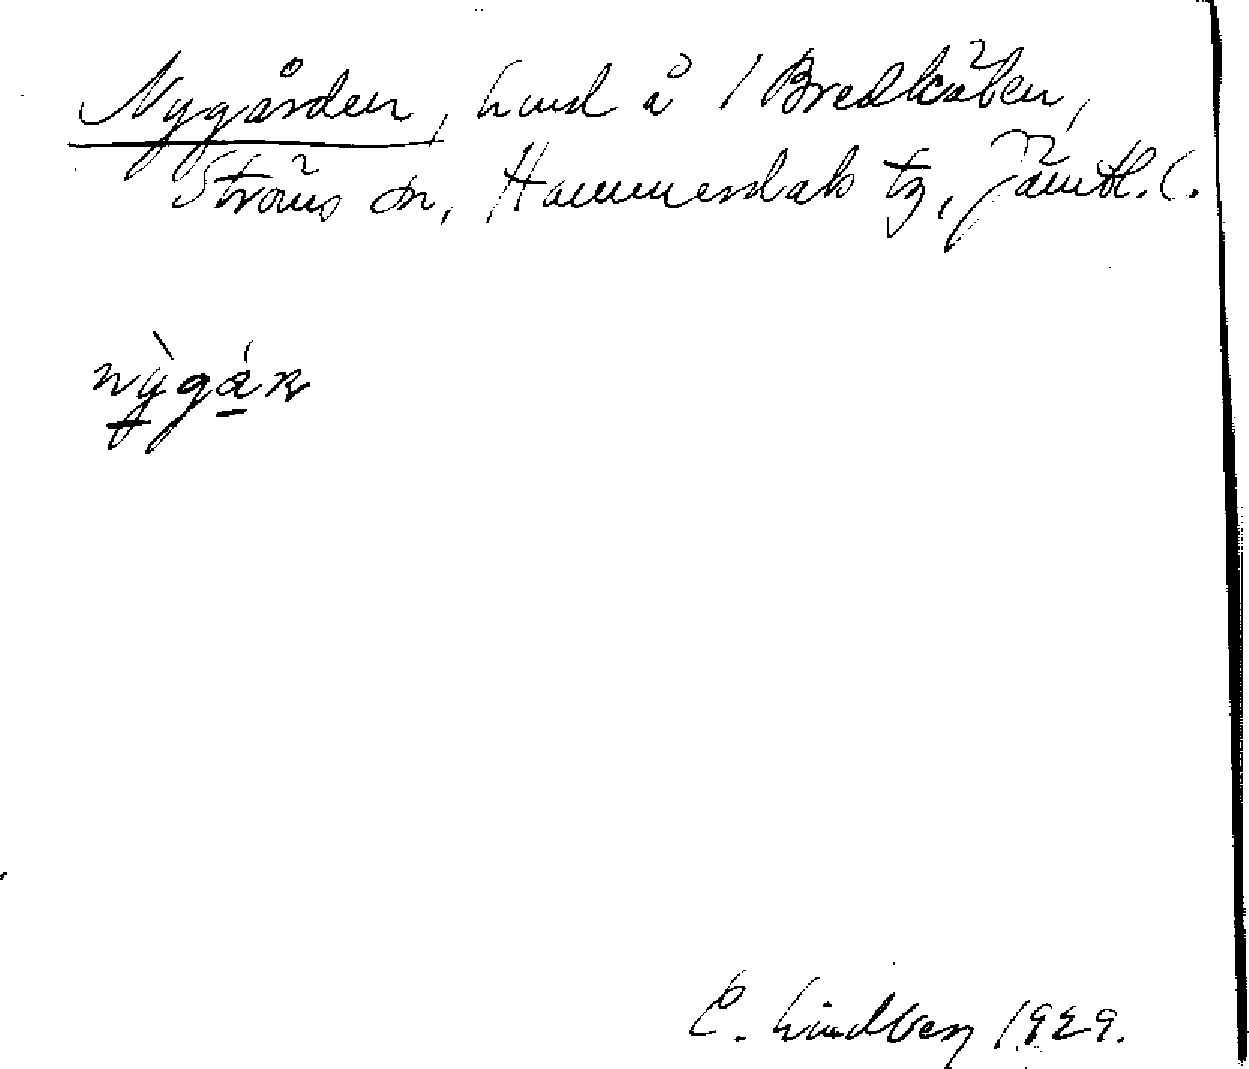 Nygården, hmd å 1 Bredkälen,
Ströms sn, Hammerdals tg, Jämtl. l.
nỳgáɳ
E. Lindberg 1929.